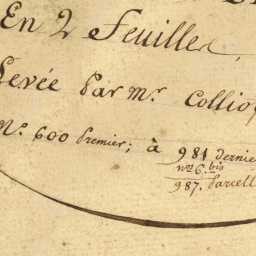 En 2 Feuilles
Levée Par Mr. Collio
No. 600 Premier; à 981 dernie
nos 6. bis
987. Parcell